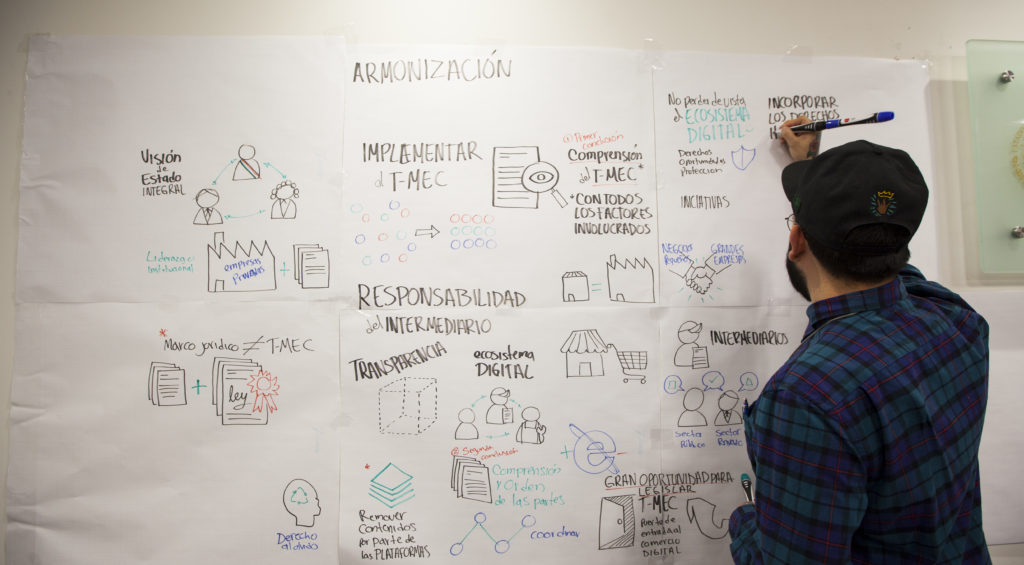 ARMONIZACIÓN
VISIÓN
de
ESTADO
INTEGRAL
Liderazgo
Institucional
empresas
PRIVADAS
+
IMPLEMENTAR
el T-MEC
① Primer
conclusión
COMPRENSIÓN
del T-MEC*
*CON TODOS
LOS FACTORES
INVOLUCRADOS
=
No perder de vista
el ECOSISTEMA
DIGITAL~
Derechos
Oportunidades
Protección
INICIATIVAS
NEGOCIOS
Pequeños
GRANDES
EMPRESAS
INCORPORAR
LOS DERECHOS
H
*
Marco jurídico ≠ T-MEC
+
ley
Derecho
al olvido
RESPONSABILIDAD
del INTERMEDIARIO
TRANSPARENCIA
ecosistema
DIGITAL
② Segunda
conclusión
Comprensión
y Orden
de las partes
+
*
Remover
Contenidos
por parte de
las PLATAFORMAS
coordinar
INTERMEDIARIOS
Sector
Público
Sector
Privado
GRAN OPORTUNIDAD PARA
LEGISLAR
T-MEC
Puerta de
entrada al
comercio
DIGITAL